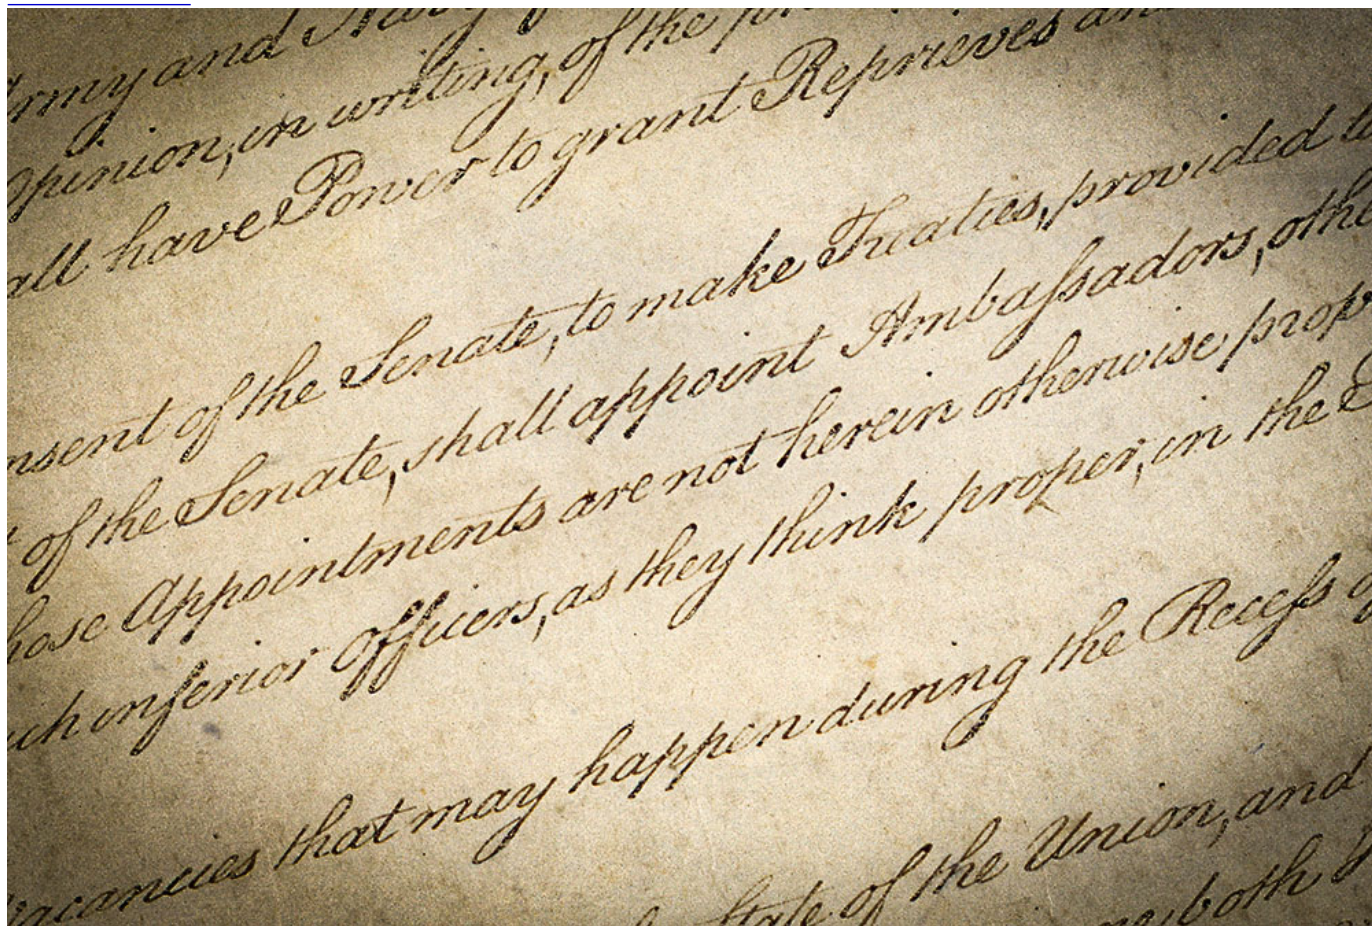 Army and Navy of
Opinion, in writing, of the pr
all have Power to grant Reprieves an
nsent of the Senate, to make Treaties, provided t
of the Senate, shall appoint Ambaſsadors, othe
hose Appointments are not herein otherwise prop
uch inferior Officers, as they think proper, in the
acancies that may happen during the Receſs o
State of the Union, and
both